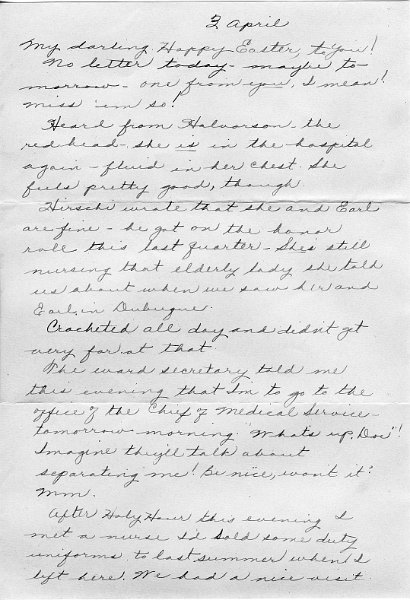 2 April
My darling Happy Easter, to You!
No letter today - maybe to-
morrow - one from you, I mean!
Miss 'em so!
Heard from Halvorson - the
redhead - she is in the hospital
again - fluid in her chest. She
feels pretty good, though.
Hirschi wrote that she and Earl
are fine - he got on the honor
roll this last quarter - She's still
nursing that elderly lady she told
us about when we saw her and
Earl, in Dubuque.
Crocheted all day and didn't get
very far at that.
The ward secretary told me
this evening that I'm to go to the
office of the Chief of Medical Service -
tomorrow morning "What's up, Doc"!
Imagine they'll talk about
separating me! Be nice, won't it?
Mm.
After Holy Hour this evening I
met a nurse I'd sold some duty
uniforms to last summer when I
left here. We had a nice visit